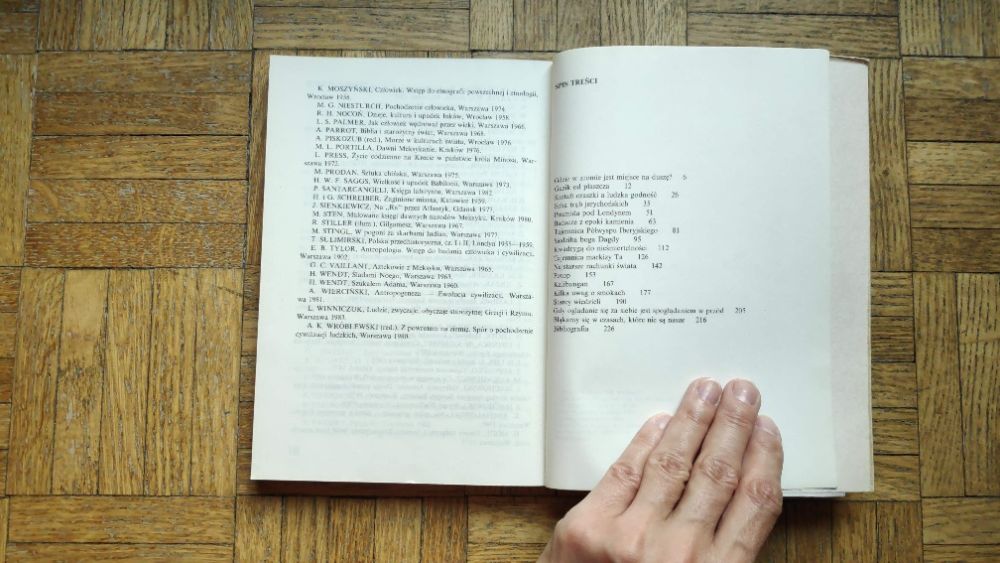 K. MOSZYŃSKI, Człowiek. Wstęp do etnografii powszechnej i etnologii,
Wrocław 1958.
M. G. NIESTURCH, Pochodzenie człowieka, Warszawa 1974.
R. H. NOCOŃ, Dzieje, kultura i upadek Inków, Wrocław 1958.
L. S. PALMER, Jak człowiek wędrował przez wieki, Warszawa 1966.
A. PARROT, Biblia i starożytny świat, Warszawa 1968.
A. PISKOZUB (red.), Morze w kulturach świata, Wrocław 1976
M. L. PORTILLA, Dawni Meksykanie, Kraków 1976.
L. PRESS, Życie codzienne na Krecie w państwie króla Minosa, War-
szawa 1972.
M. PRODAN, Sztuka chińska, Warszawa 1975.
H. W. F. SAGGS, Wielkość i upadek Babilonii, Warszawa 1973.
P. SANTARCANGELI, Księga labiryntu, Warszawa 1982.
H. i G. SCHREIBER, Zaginione miasta, Katowice 1959.
J. SIENKIEWICZ, Na „Ra" przez Atlantyk, Gdańsk 1973.
M. STEN, Malowane księgi dawnych narodów Meksyku, Kraków 1980.
R. STILLER (tłum.), Gilgamesz, Warszawa 1967.
M. STINGL, W pogoni za skarbami Indian, Warszawa 1977.
T. SULIMIRSKI, Polska przedhistoryczna, cz. I i II, Londyn 1955—1959.
E. B. TYLOR, Antropologia. Wstęp do badania człowieka i cywilizacji,
Warszawa 1902.
G. C. VAILLANT, Aztekowie z Meksyku, Warszawa 1965.
H. WENDT, Śladami Noego, Warszawa 1963.
H. WENDT, Szukałem Adama, Warszawa 1960.
A. WIERCIŃSKI, Antropogeneza — Ewolucja cywilizacji, Warsza-
wa 1981.
L. WINNICZUK, Ludzie, zwyczaje, obyczaje starożytnej Grecji i Rzymu,
Warszawa 1983.
A. K. WRÓBLEWSKI (red.), Z powrotem na ziemię. Spór o pochodzenie
cywilizacji ludzkich, Warszawa 1980.
SPIS TREŚCI
Gdzie w ziemie jest miejsce na duszę? 6
Guzik od płaszcza 12
Kształt czaszki a ludzka godność 26
Echa trąb jerychońskich 33
Piramida pod Londynem 51
Budowle z epoki kamienia 63
Tajemnica Półwyspu Iberyjskiego 81
Siedziba boga Dagdy 95
Kwadrygą do nieśmiertelności 112
Tajemnica markizy Ta 126
Na starsze rachunki świata 142
153
167
Kilka uwag o smokach 177
Starcy wiedzieli 190
Gdy oglądanie się za siebie jest spoglądaniem w przód 205
Błąkamy się w czasach, które nie są nasze 216
Bibliografia 226